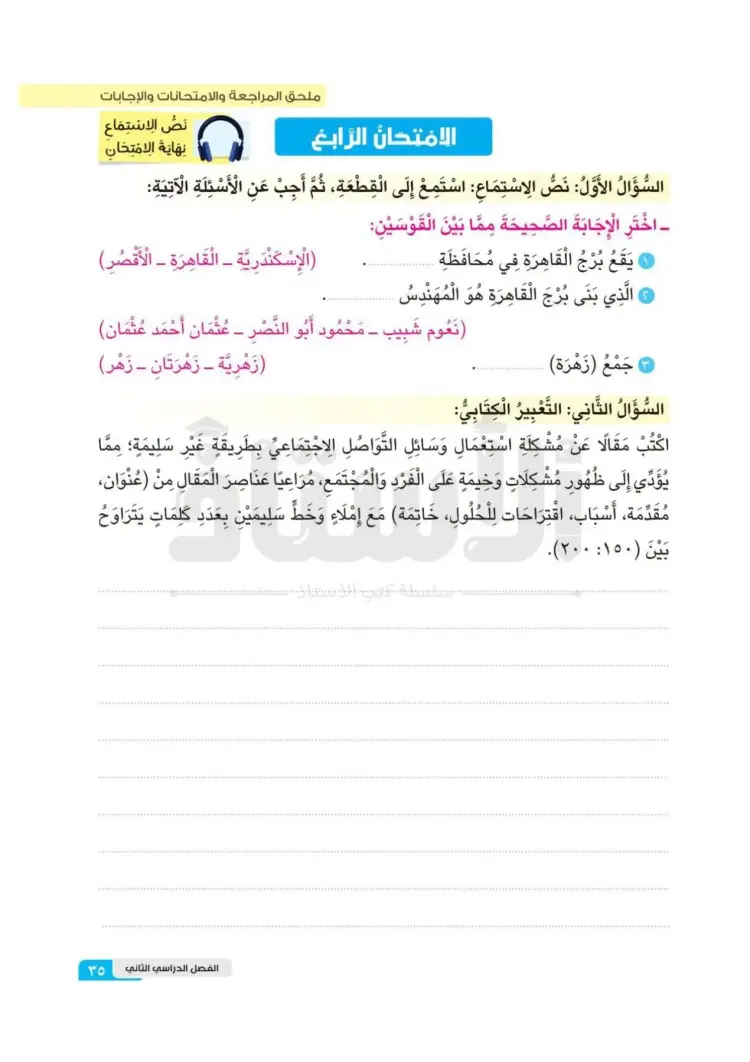 ملحق المراجعة والامتحانات والإجابات
نَصُّ الِاسْتِمَاعِ
نِهَايَةَ الِامْتِحَانِ
الِامْتِحَانُ الرَّابِعُ
السُّؤَالُ الْأَوَّلُ: نَصُّ الِاسْتِمَاعِ: اسْتَمِعْ إِلَى الْقِطْعَةِ، ثُمَّ أَجِبْ عَنِ الْأَسْئِلَةِ الْآتِيَةِ:
ــ اخْتَرِ الْإِجَابَةَ الصَّحِيحَةَ مِمَّا بَيْنَ الْقَوْسَيْنِ:
١ يَقَعُ بُرْجُ الْقَاهِرَةِ فِي مُحَافَظَةِ .................. . (الْإِسْكَنْدَرِيَّةِ ــ الْقَاهِرَةِ ــ الْأَقْصُرِ)
٢ الَّذِي بَنَى بُرْجَ الْقَاهِرَةِ هُوَ الْمُهَنْدِسُ .................. .
(نَعُوم شَبِيب ــ مَحْمُود أَبُو النَّصْرِ ــ عُثْمَان أَحْمَد عُثْمَان)
٣ جَمْعُ (زَهْرَة) .................. . (زَهْرِيَّة ــ زَهْرَتَانِ ــ زَهْر)
السُّؤَالُ الثَّانِي: التَّعْبِيرُ الْكِتَابِيُّ:
اكْتُبْ مَقَالًا عَنْ مُشْكِلَةِ اسْتِعْمَالِ وَسَائِلِ التَّوَاصُلِ الِاجْتِمَاعِيِّ بِطَرِيقَةٍ غَيْرِ سَلِيمَةٍ؛ مِمَّا
يُؤَدِّي إِلَى ظُهُورِ مُشْكِلَاتٍ وَخِيمَةٍ عَلَى الْفَرْدِ وَالْمُجْتَمَعِ، مُرَاعِيًا عَنَاصِرَ الْمَقَالِ مِنْ (عُنْوَان،
مُقَدِّمَة، أَسْبَاب، اقْتِرَاحَات لِلْحُلُولِ، خَاتِمَة) مَعَ إِمْلَاءٍ وَخَطٍّ سَلِيمَيْنِ بِعَدَدِ كَلِمَاتٍ يَتَرَاوَحُ
بَيْنَ (١٥٠: ٢٠٠).
الأستاذ
سلسلة كتب الأستاذ
الفصل الدراسي الثاني
٣٥